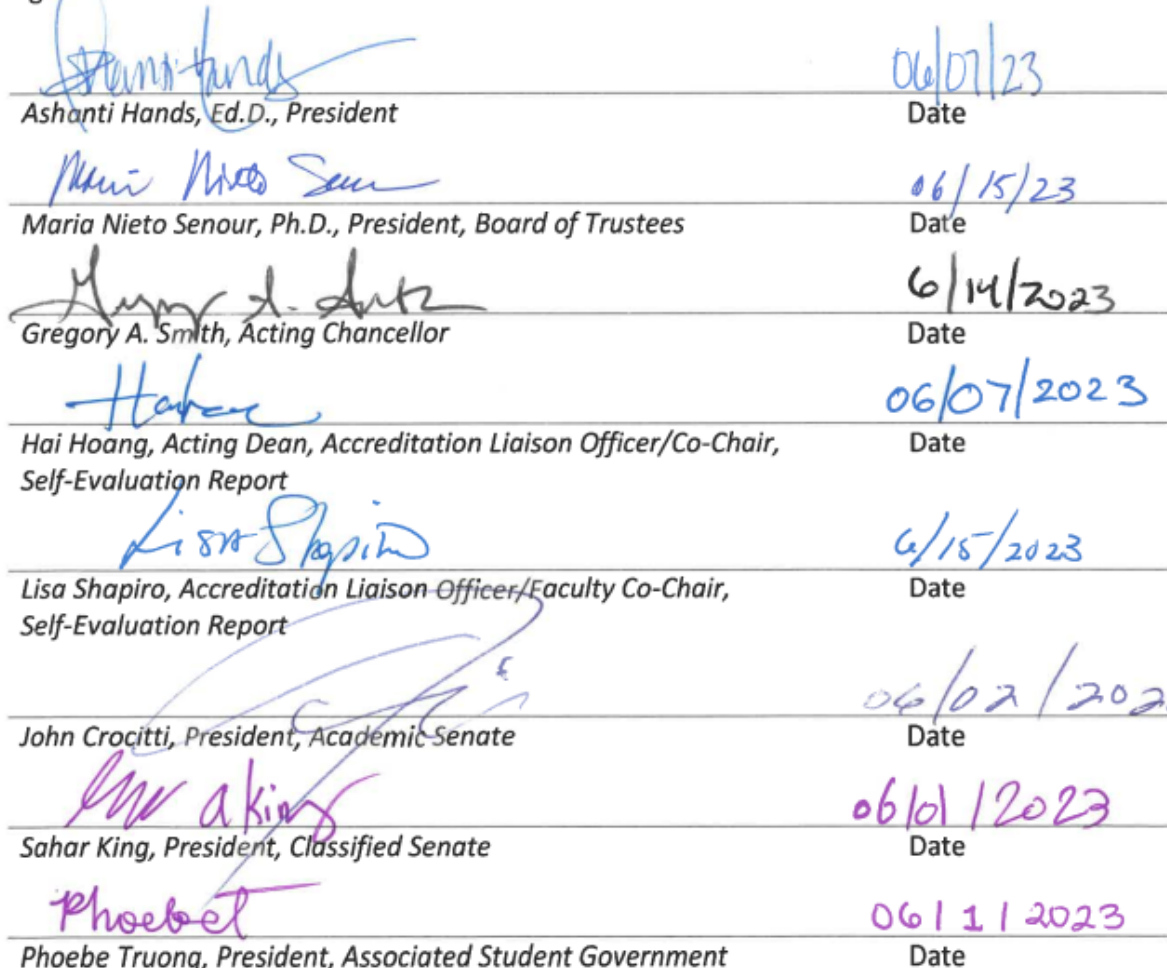 Ashanti Hands 06/07/23
Ashanti Hands, Ed.D., President Date
Maria Nieto Senour 06/15/23
Maria Nieto Senour, Ph.D., President, Board of Trustees Date
6/14/2023
Gregory A. Smith, Acting Chancellor Date
06/07/2023
Hai Hoang, Acting Dean, Accreditation Liaison Officer/Co-Chair, Date
Self-Evaluation Report
Lisa Shapiro 6/15/2023
Lisa Shapiro, Accreditation Liaison Officer/Faculty Co-Chair, Date
Self-Evaluation Report
06/02/202
John Crocitti, President, Academic Senate Date
a King 06/01/2023
Sahar King, President, Classified Senate Date
PhoebeT 06/1/2023
Phoebe Truong, President, Associated Student Government Date